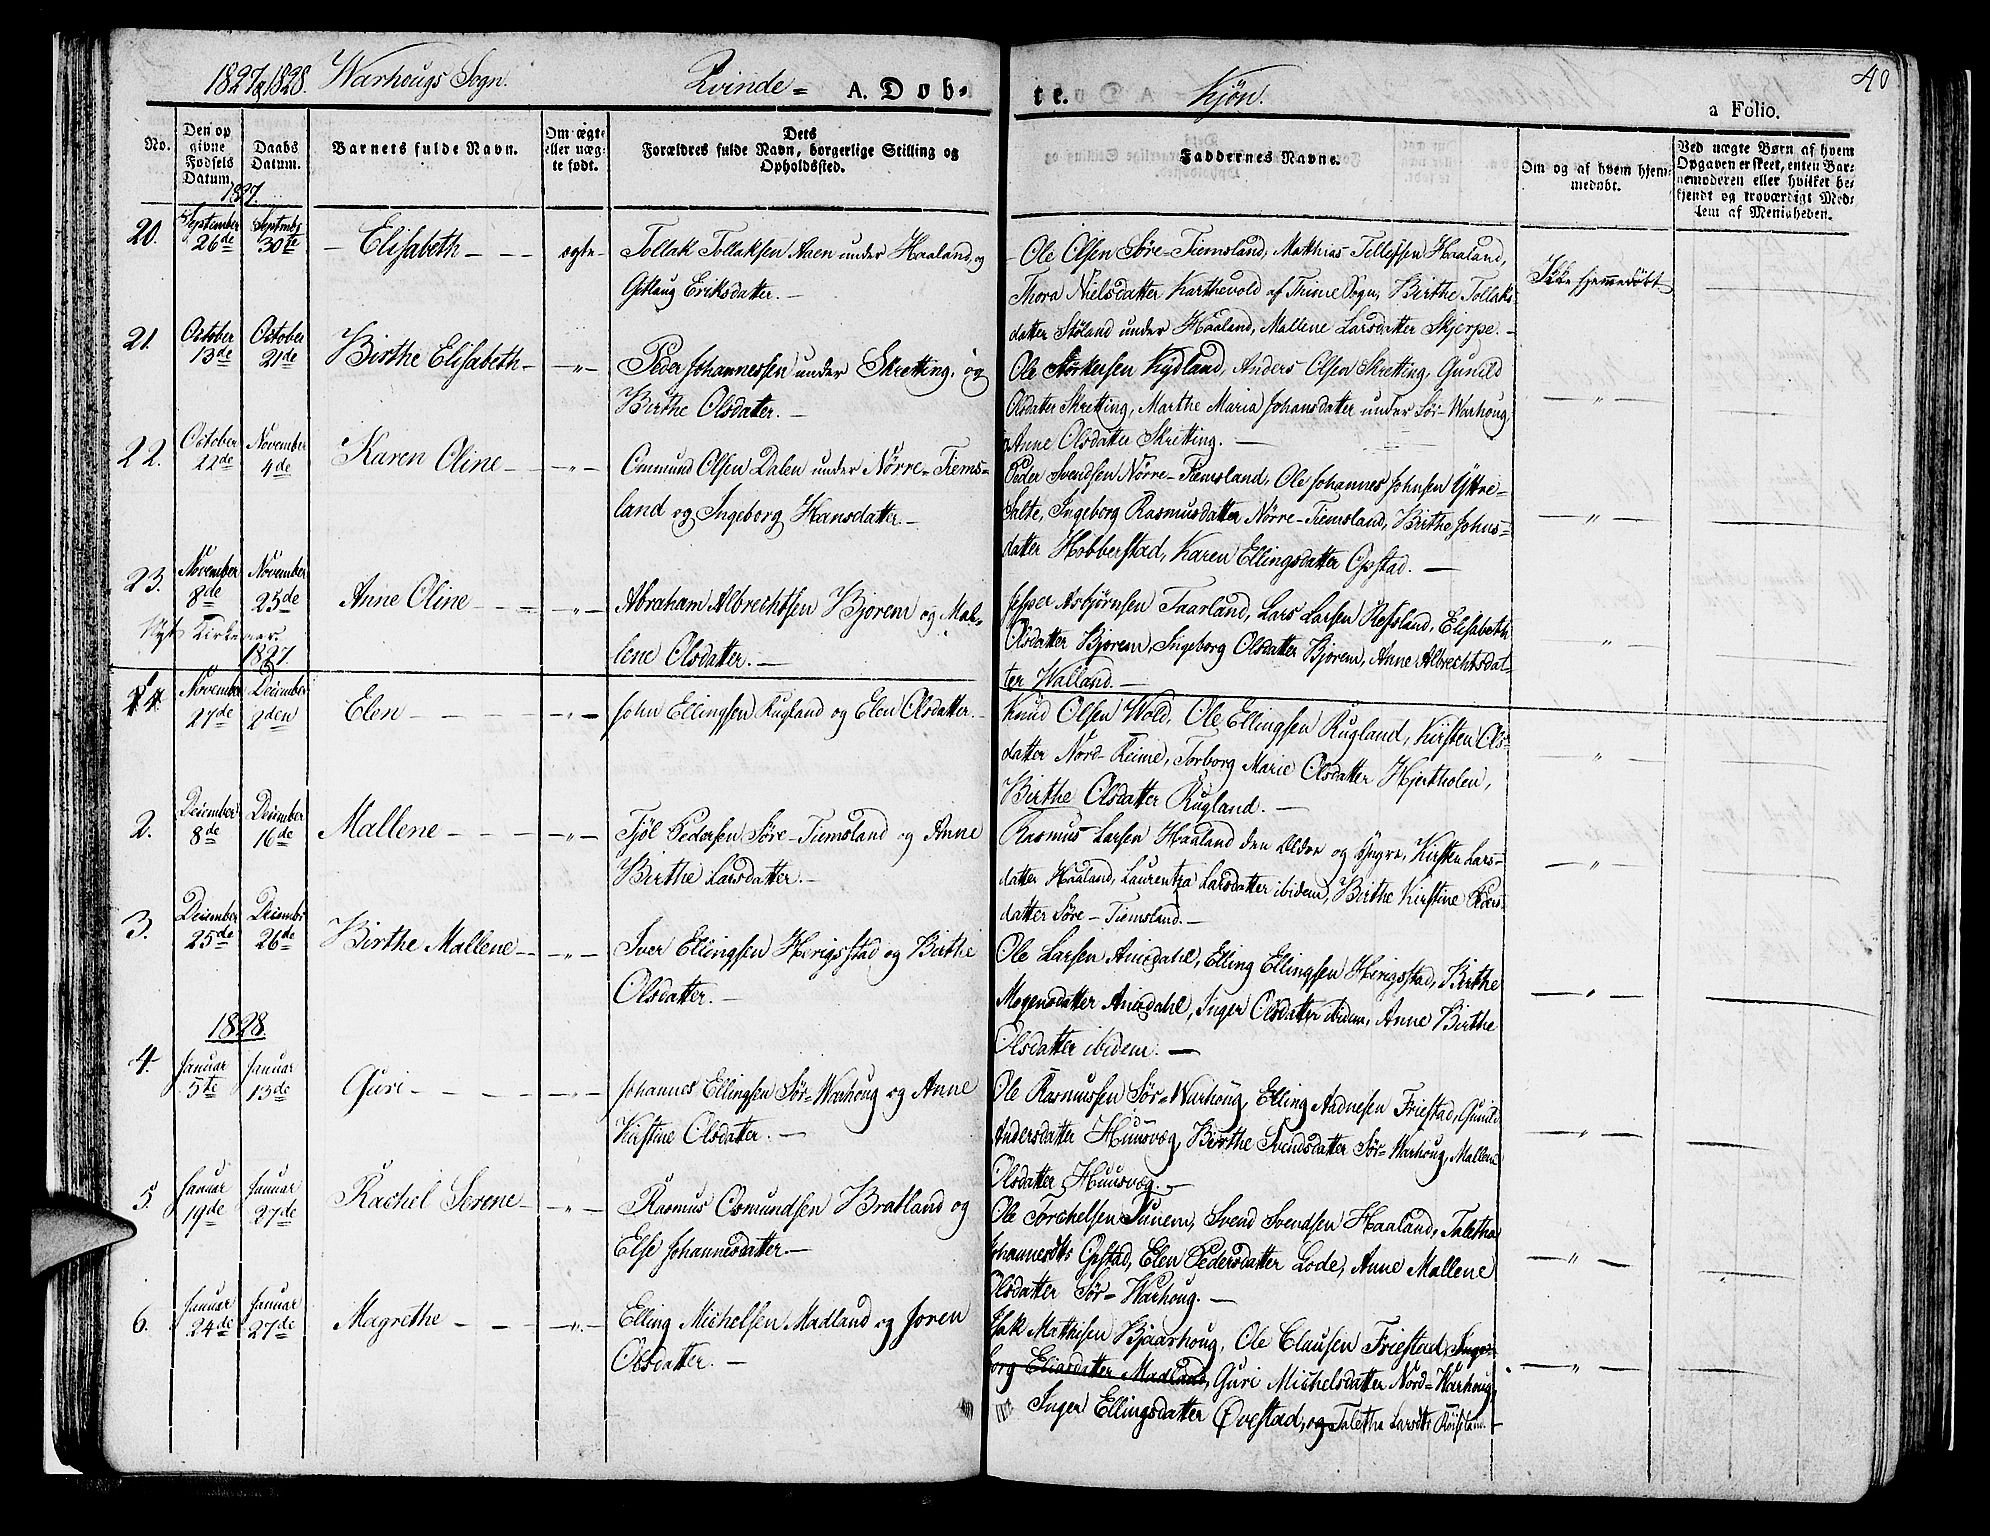 1827 & 1828. Warhougs Sogn. Qvinde= A. Døb-
te. Kjøn. 40
a Folio.
No. Den opgivne Fødsels Datum. Daabs Datum. Barnets fulde Navn. Om ægte eller uægte født. Dets Forældres fulde Navn, borgerlige Stilling og Opholdssted.
Faddernes Navne. Om og af hvem hjemmedøbt. Ved uægte Børn af hvem Opgaven er skeet, enten Barnemoderen eller hvilket bekjendt og troværdigt Medlem af Menigheden.
1827.
20. September 26de Septmbr 30te Elisabeth ægte Tollak Tollaksen Aaen under Haaland, og
Gitlaug Eriksdatter.
Ole Olsen Søre-Tiemsland, Matthias Tellefsen Haaland,
Thora Nielsdatter Karthevold af Thime Sogn, Birthe Tollaks-
datter Støland under Haaland, Mallene Larsdatter Skjerpe.
Ikke hjemmedøbt
21. October 13de October 21de Birthe Elisabeth " Peder Johannessen under Skretting, og
Birthe Olsdatter.
Ole Størkersen Kydland, Anders Olsen Skretting, Gunild
Olsdatter Skretting, Marthe Maria Johansdatter under Sør-Warhoug,
Anne Olsdatter Skretting.
"
22. October 22de November 4de Karen Oline " Ommund Olsen Dalen under Nørre-Tiems-
land og Ingeborg Hansdatter.
Peder Svendsen Nørre-Tiemsland, Ole Johannes Johnsen Yttre-
Salte, Ingeborg Rasmusdatter Nørre-Tiemsland, Birthe Johns-
datter Hobberstad, Karen Ellingsdatter Opstad.
"
23. November 8de November 25de Anne Oline " Abraham Albrechtsen Bjorem og Mal-
lene Olsdatter.
Jesper Asbjørnsen Taarland, Lars Larsen Refsland, Elisabeth
Olsdatter Bjorem, Ingeborg Olsdatter Bjorem, Anne Albrechtsdat-
ter Walland.
"
Nyt Kirkeaar
1827
1. November 27de December 2den Elen " John Ellingsen Rugland og Elen Olsdatter.
Knud Olsen Wold, Ole Ellingsen Rugland, Kirsten Ols-
datter Nord-Reime, Torborg Marie Olsdatter Hjertholen,
Birthe Olsdatter Rugland.
"
2. December 8de December 16de Mallene " Tjøl Pedersen Søre-Tiemsland og Anne
Birthe Larsdatter.
Rasmus Larsen Haaland den Ældre og Yngre, Kirsten Lars-
datter Haaland, Laurentza Larsdatter ibidem, Birthe Kirstine Peders-
datter Søre-Tiemsland.
"
3. December 25de December 26de Birthe Mallene " Iver Ellingsen Herigsstad og Birthe
Olsdatter.
Ole Larsen Anisdahl, Elling Ellingsen Herigsstad, Birthe
Mogensdatter Anisdahl, Inger Olsdatter ibidem, Anne Birthe
Olsdatter ibidem.
"
1828.
4. Januar 5te Januar 13de Guri " Johannes Ellingsen Sør-Warhoug og Anne
Kirstine Olsdatter.
Ole Rasmussen Sør-Warhoug, Elling Aadnesen Friestad, Gunild
Andersdatter Huusvæg, Birthe Svendsdatter Sør-Warhoug, Mallene
Olsdatter Huusvæg.
"
5. Januar 19de Januar 27de Rachel Serene " Rasmus Osmundsen Bratland og
Else Johannesdatter.
Ole Torchelsen Tunem, Svend Svendsen Haaland, Taletha
Johannesdtr Opstad, Elen Pedersdatter Lode, Anne Mallene
Olsdatter Sør-Warhoug.
"
6. Januar 24de Januar 27de Magrethe " Elling Michelsen Madland og Joren
Olsdatter.
Isak Mathisen Bjaarhoug, Ole Clausen Friestad, Inge-
borg Eliasdatter Madland, Guri Michelsdatter Nord-Warhoug,
Inger Ellingsdatter Ovestad, og Taletha Larsdtr
"